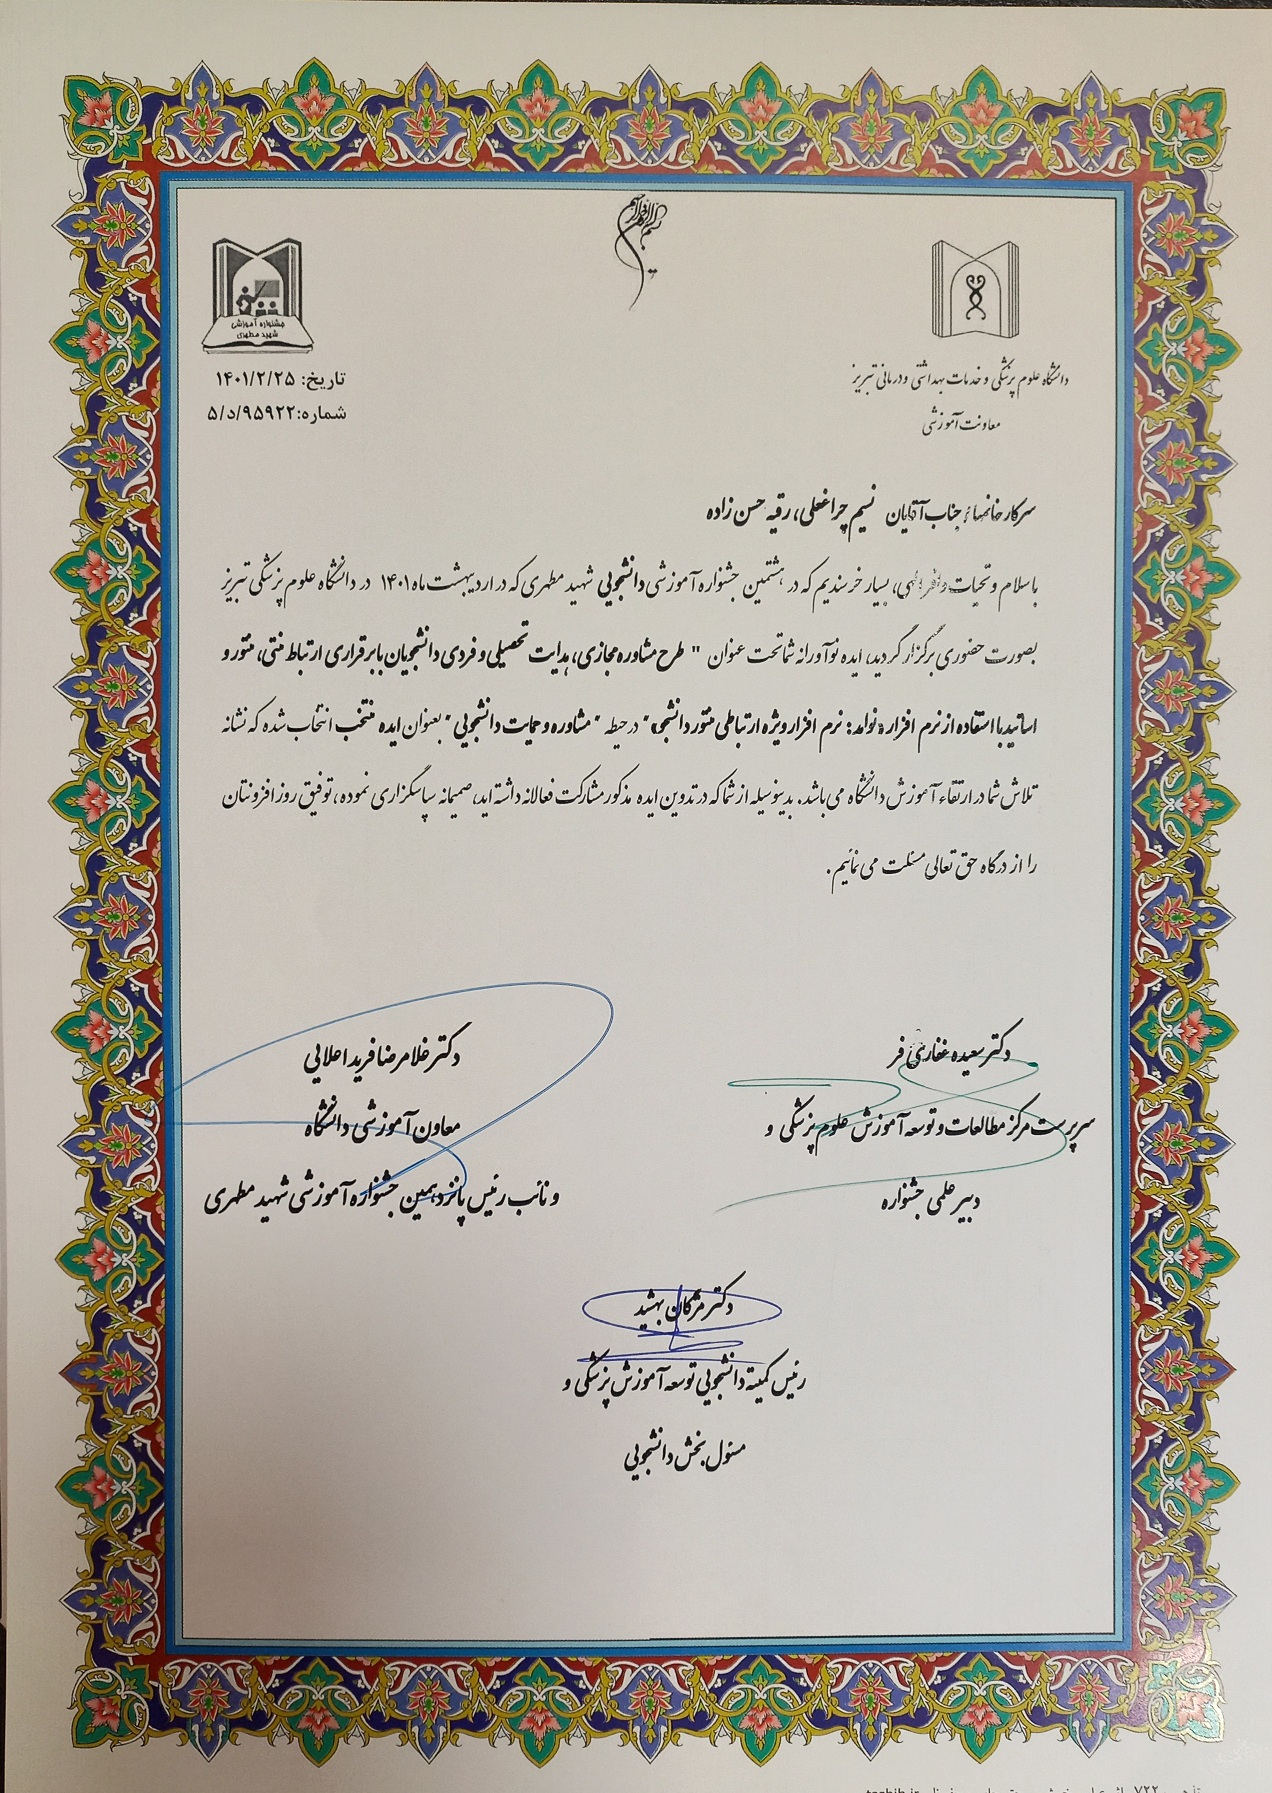 بسم الله الرحمن الرحیم
جشنواره آموزشی
شهید مطهری
تاریخ: ۱۴۰۱/۲/۲۵
شماره: ۵/د/۹۵۹۲۲
دانشگاه علوم پزشکی و خدمات بهداشتی و درمانی تبریز
معاونت آموزشی
سرکار خانمها / جناب آقایان نسیم چراغعلی، رقیه حسن زاده
با سلام و تحیات الهی، بسیار خرسندیم که در هشتمین جشنواره آموزشی دانشجویی شهید مطهری که در اردیبهشت ماه ۱۴۰۱ در دانشگاه علوم پزشکی تبریز
بصورت حضوری برگزار گردید، ایده نوآورانه شما تحت عنوان " طرح مشاوره مجازی، هدایت تحصیلی و فردی دانشجویان با برقراری ارتباط منتی، منتور و
اساتید با استفاده از نرم افزار نرم افزار ویژه ارتباطی منتور دانشجو" در حیطه " مشاوره و حمایت دانشجویی " بعنوان ایده منتخب انتخاب شده که نشانه
تلاش شما در ارتقاء آموزش دانشگاه می باشد. بدینوسیله از شما که در تدوین ایده مذکور مشارکت فعالانه داشته اید، صمیمانه سپاسگزاری نموده، توفیق روز افزونتان
را از درگاه حق تعالی مسئلت می نمائیم.
دکتر سعیده غفاری فر
سرپرست مرکز مطالعات و توسعه آموزش علوم پزشکی و
دبیر علمی جشنواره
دکتر غلامرضا فرید اعلایی
معاون آموزشی دانشگاه
و نائب رئیس پانزدهمین جشنواره آموزشی شهید مطهری
دکتر مژگان بهشید
رئیس کمیته دانشجویی توسعه آموزش پزشکی و
مسئول بخش دانشجویی